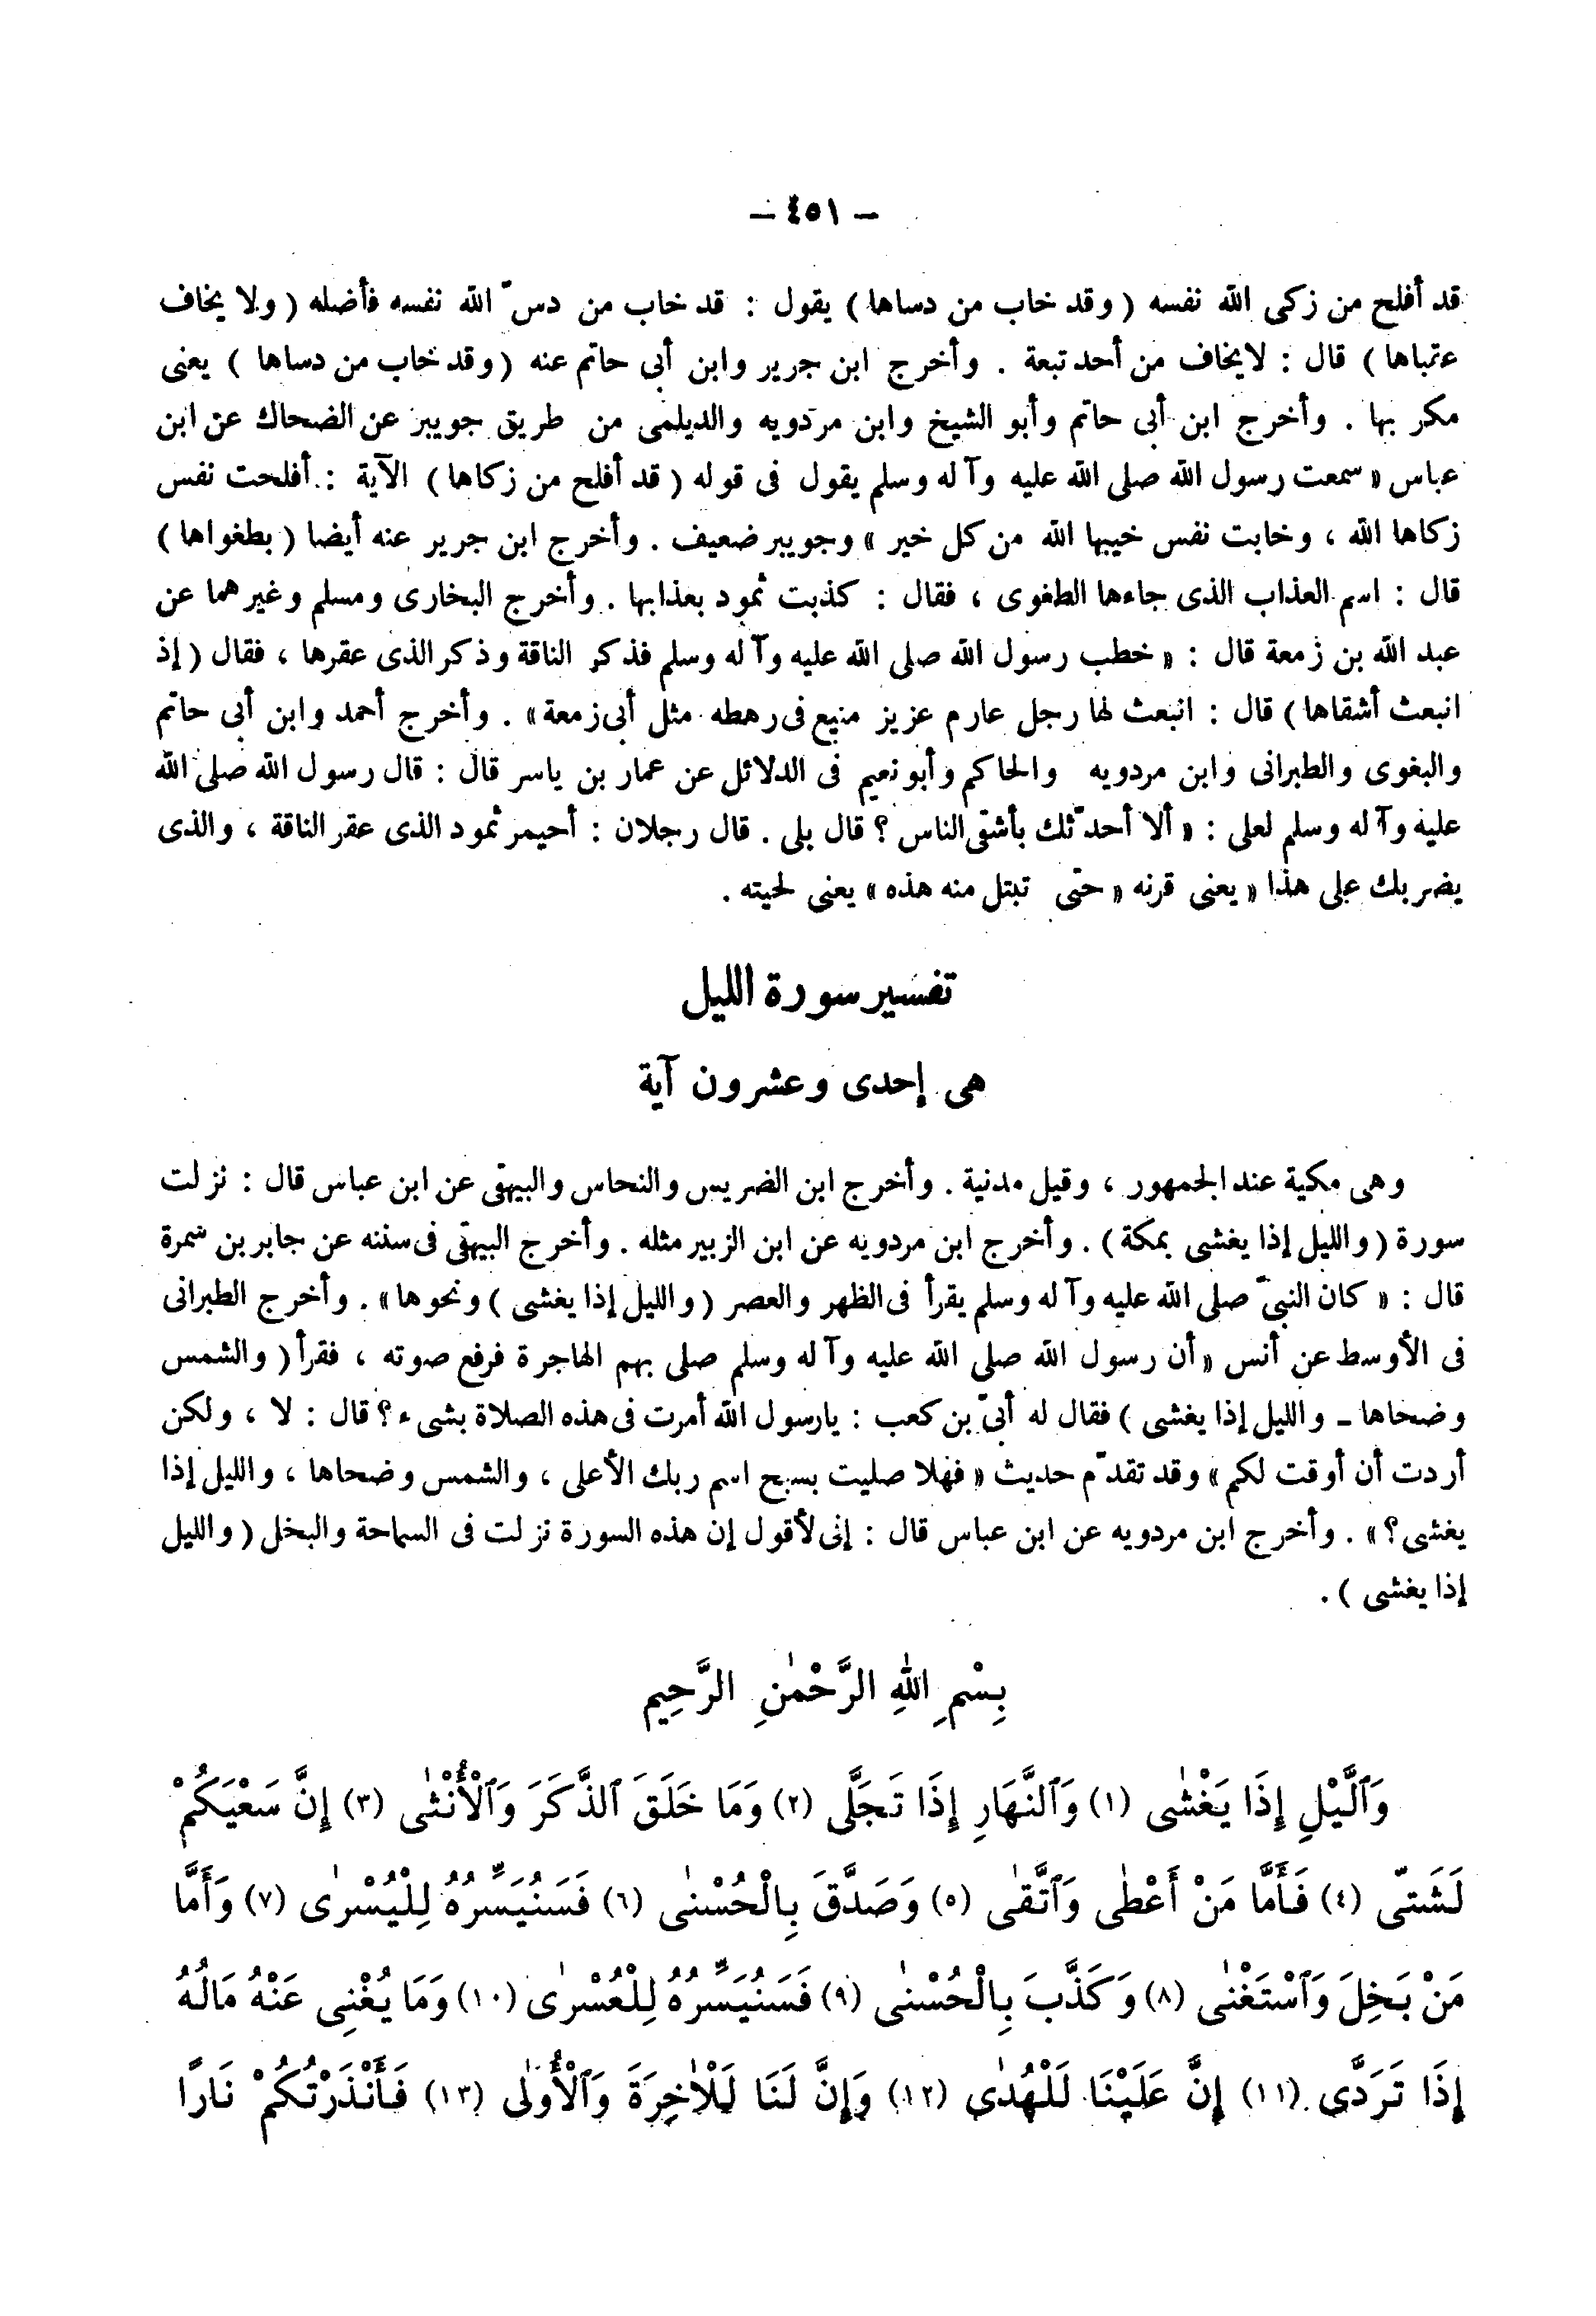 — ٤٥١ —
قد أفلح من زكى الله نفسه ( وقد خاب من دساها ) يقول : قد خاب من دسّ الله نفسه فأضله ( ولا يخاف
عقباها ) قال : لايخاف من أحد تبعة . وأخرج ابن جرير وابن أبى حاتم عنه ( وقد خاب من دساها ) يعنى
مكر بها . وأخرج ابن أبى حاتم وأبو الشيخ وابن مردويه والديلمى من طريق جويبر عن الضحاك عن ابن
عباس « سمعت رسول الله صلى الله عليه وآله وسلم يقول فى قوله ( قد أفلح من زكاها ) الآية : أفلحت نفس
زكاها الله ، وخابت نفس خيبها الله من كل خير » وجويبر ضعيف . وأخرج ابن جرير عنه أيضا ( بطغواها )
قال : اسم العذاب الذى جاءها الطغوى ، فقال : كذبت ثمود بعذابها . وأخرج البخارى ومسلم وغيرهما عن
عبد الله بن زمعة قال : « خطب رسول الله صلى الله عليه وآله وسلم فذكر الناقة وذكر الذى عقرها ، فقال ( إذ
انبعث أشقاها ) قال : انبعث لها رجل عارم عزيز منيع فى رهطه مثل أبى زمعة » . وأخرج أحمد وابن أبى حاتم
والبغوى والطبرانى وابن مردويه والحاكم وأبو نعيم فى الدلائل عن عمار بن ياسر قال : قال رسول الله صلى الله
عليه وآله وسلم لعلى : « ألا أحدّثك بأشقى الناس ؟ قال بلى . قال رجلان : أحيمر ثمود الذى عقر الناقة ، والذى
يضربك على هذا « يعنى قرنه « حتى تبتل منه هذه » يعنى لحيته .
تفسير سورة الليل
هى إحدى وعشرون آية
وهى مكية عند الجمهور ، وقيل مدنية . وأخرج ابن الضريس والنحاس والبيهقى عن ابن عباس قال : نزلت
سورة ( والليل إذا يغشى بمكة ) . وأخرج ابن مردويه عن ابن الزبير مثله . وأخرج البيهقى فى سننه عن جابر بن سمرة
قال : « كان النبىّ صلى الله عليه وآله وسلم يقرأ فى الظهر والعصر ( والليل إذا يغشى ) ونحوها » . وأخرج الطبرانى
فى الأوسط عن أنس « أن رسول الله صلى الله عليه وآله وسلم صلى بهم الهاجرة فرفع صوته ، فقرأ ( والشمس
وضحاها - والليل إذا يغشى ) فقال له أبىّ بن كعب : يارسول الله أمرت فى هذه الصلاة بشىء ؟ قال : لا ، ولكن
أردت أن أوقت لكم » وقد تقدّم حديث « فهلا صليت بسبح اسم ربك الأعلى ، والشمس وضحاها ، والليل إذا
يغشى ؟ » . وأخرج ابن مردويه عن ابن عباس قال : إنى لأقول إن هذه السورة نزلت فى السماحة والبخل ( والليل
إذا يغشى ) .
بِسْمِ اللهِ الرَّحْمٰنِ الرَّحِيمِ
وَٱلَّيْلِ إِذَا يَغْشٰى (١) وَٱلنَّهَارِ إِذَا تَجَلَّى (٢) وَمَا خَلَقَ ٱلذَّكَرَ وَٱلْأُنْثٰى (٣) إِنَّ سَعْيَكُمْ
لَشَتّى (٤) فَأَمَّا مَنْ أَعْطٰى وَٱتَّقٰى (٥) وَصَدَّقَ بِالْحُسْنٰى (٦) فَسَنُيَسِّرُهُ لِلْيُسْرٰى (٧) وَأَمَّا
مَنْ بَخِلَ وَٱسْتَغْنٰى (٨) وَكَذَّبَ بِالْحُسْنٰى (٩) فَسَنُيَسِّرُهُ لِلْعُسْرٰى (١٠) وَمَا يُغْنِى عَنْهُ مَالُهُ
إِذَا تَرَدَّى (١١) إِنَّ عَلَيْنَا لَلْهُدٰى (١٢) وَإِنَّ لَنَا لَلْاٰخِرَةَ وَٱلْأُولٰى (١٣) فَأَنْذَرْتُكُمْ نَارًا